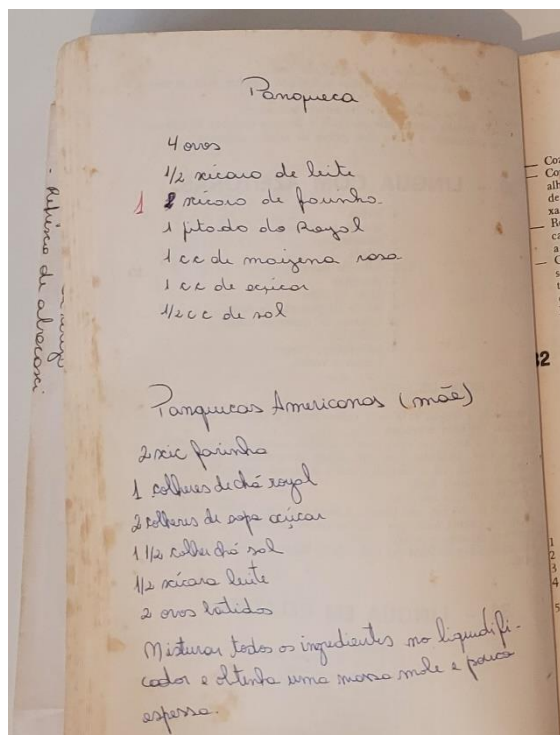 Panqueca
4 ovos
1/2 xícara de leite
1 xícara de farinha
1 pitada do Royal
1 cc de maizena rasa
1 cc de açúcar
1/2 cc de sal
Panquecas Americanas (mãe)
2 xic farinha
1 colheres de chá royal
2 colheres de sopa açúcar
1 1/2 colher chá sal
1/2 xícara leite
2 ovos batidos
Misturar todos os ingredientes no liquidifi-
cador e obtenha uma massa mole e pouco
espessa.
Refresco de abacaxi
32
1
2
3
4
5